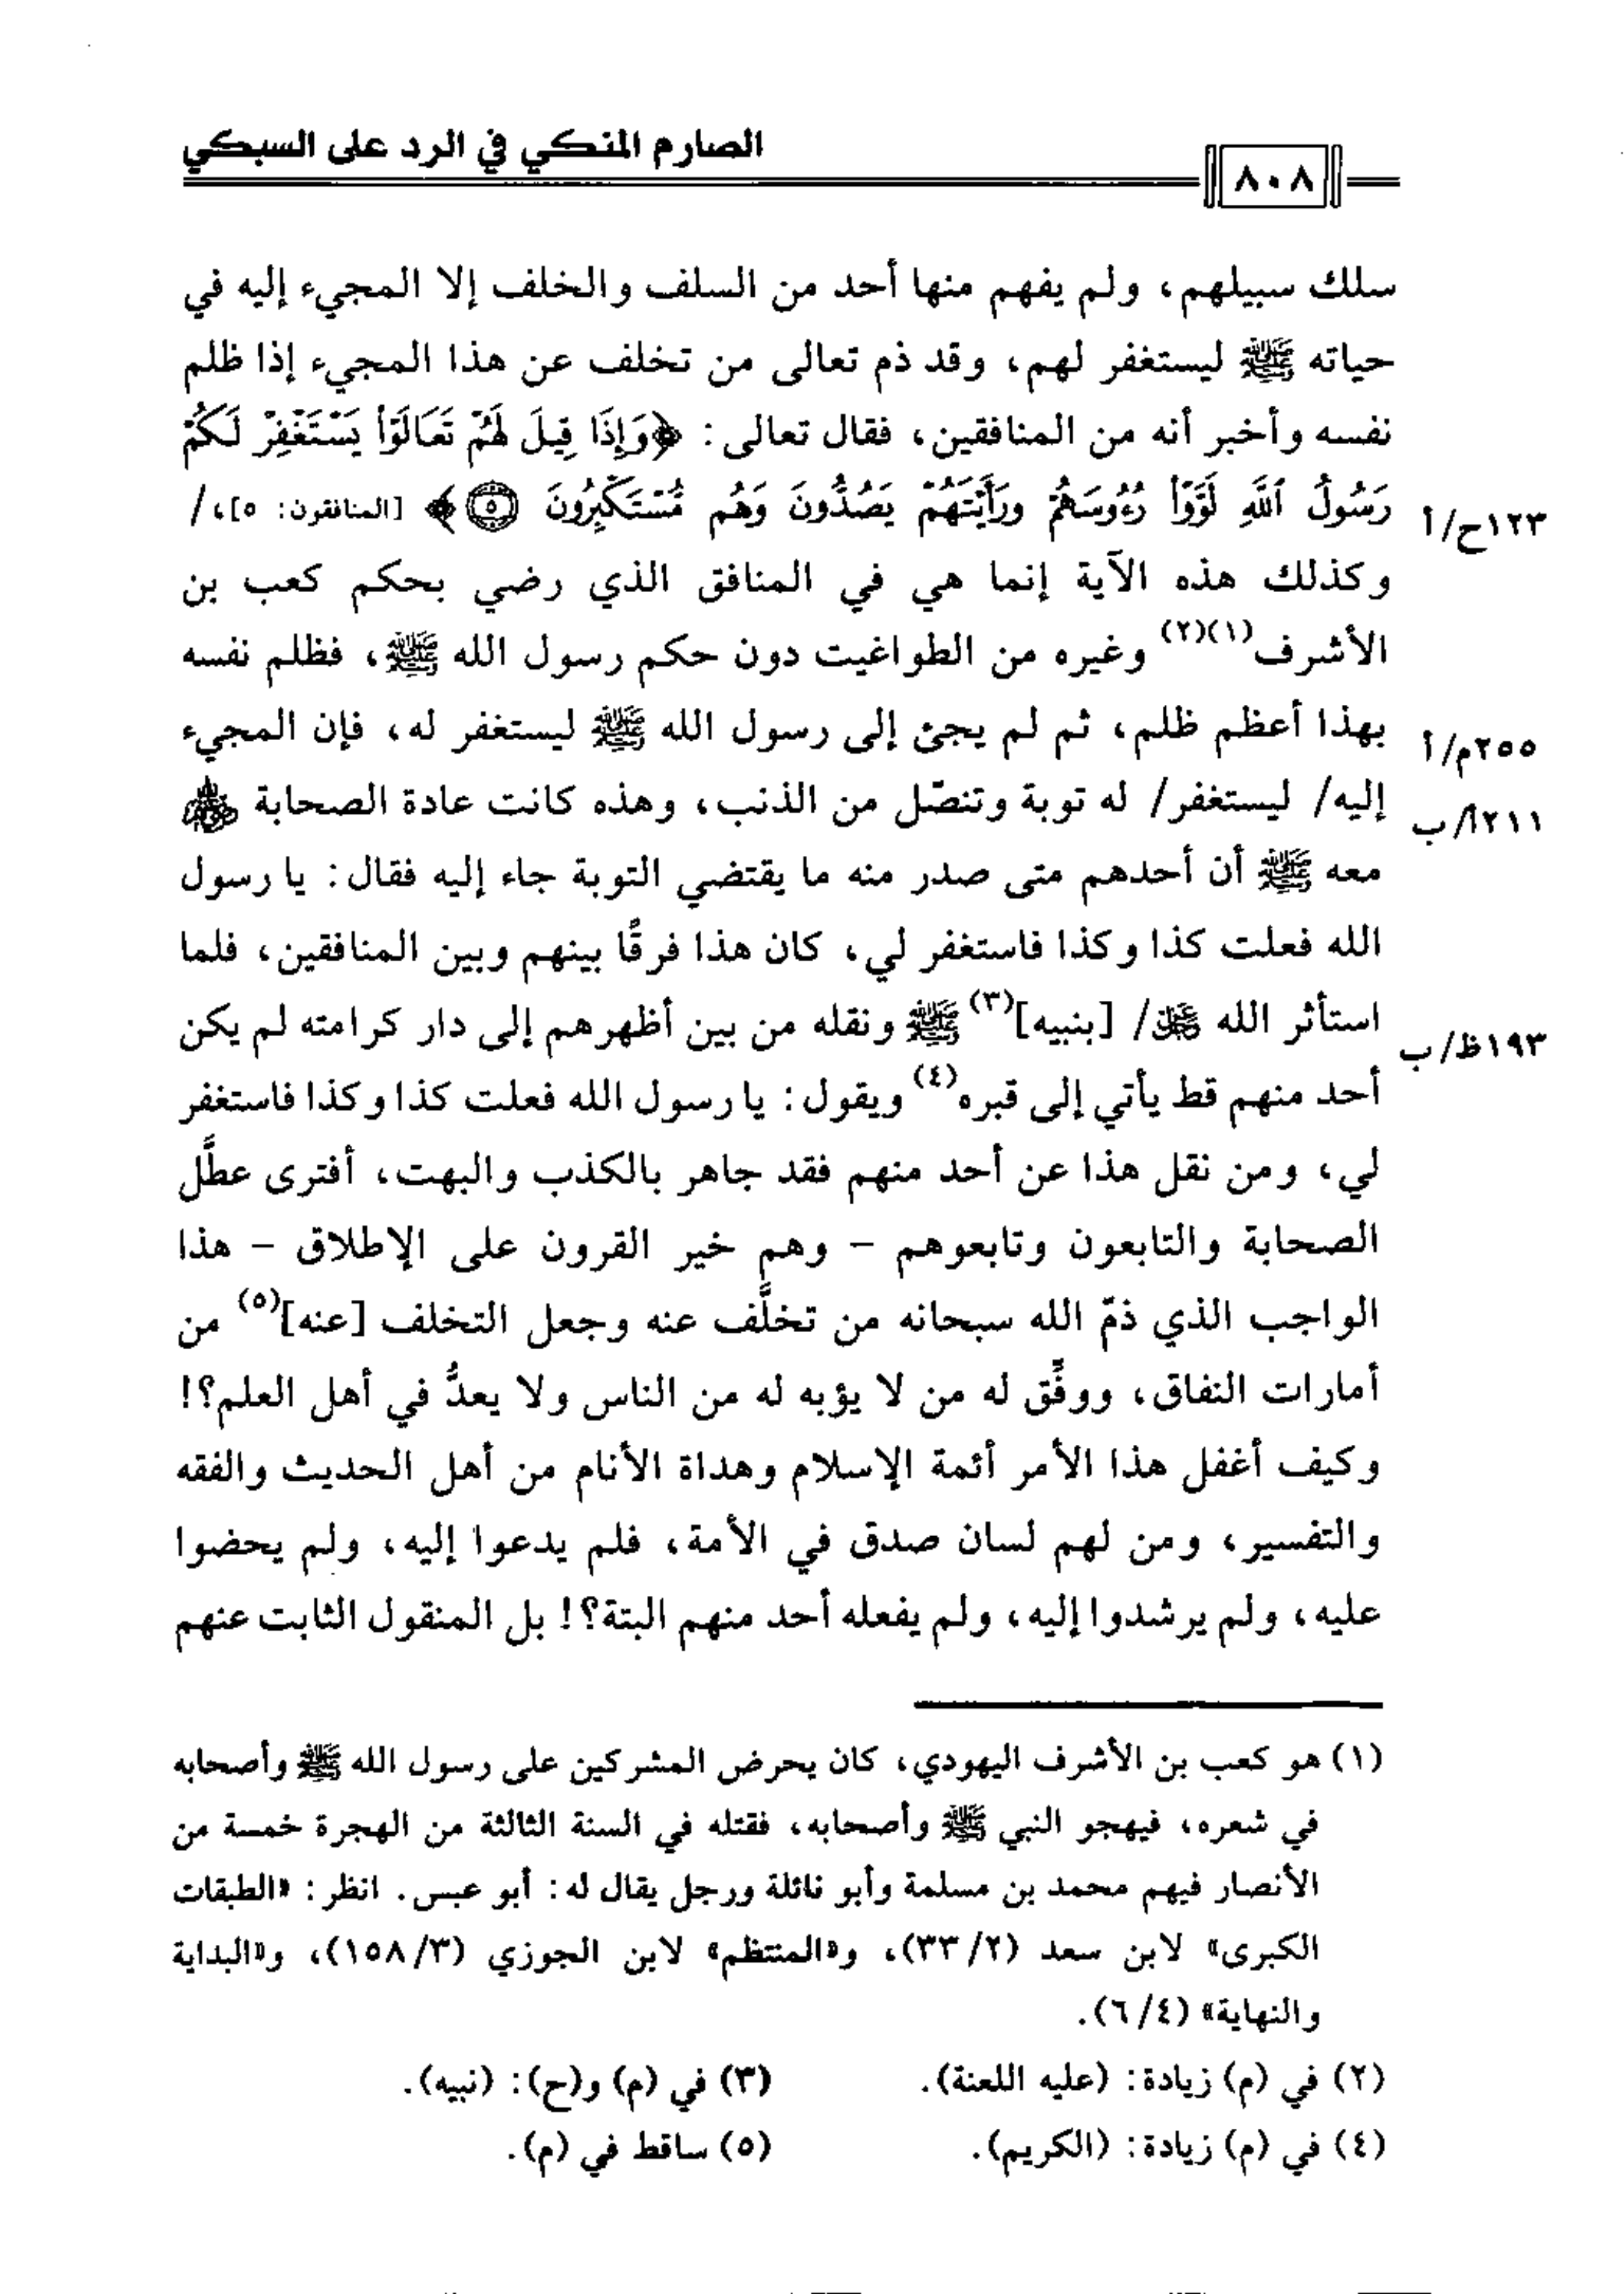 الصارم المنكي في الرد على السبكي
٨٠٨
سلك سبيلهم، ولم يفهم منها أحد من السلف والخلف إلا المجيء إليه في
حياته ﷺ ليستغفر لهم، وقد ذم تعالى من تخلف عن هذا المجيء إذا ظلم
نفسه وأخبر أنه من المنافقين، فقال تعالى: ﴿وَإِذَا قِيلَ لَهُمْ تَعَالَوْا۟ يَسْتَغْفِرْ لَكُمْ
رَسُولُ ٱللَّهِ لَوَّوْا۟ رُءُوسَهُمْ وَرَأَيْتَهُمْ يَصُدُّونَ وَهُم مُّسْتَكْبِرُونَ ۝٥﴾ [المنافقون: ٥]،/
١٢٣ح/أ
وكذلك هذه الآية إنما هي في المنافق الذي رضي بحكم كعب بن
الأشرف(١)(٢) وغيره من الطواغيت دون حكم رسول الله ﷺ، فظلم نفسه
بهذا أعظم ظلم، ثم لم يجئ إلى رسول الله ﷺ ليستغفر له، فإن المجيء
٢٥٥م/أ
إليه/ ليستغفر/ له توبة وتنصّل من الذنب، وهذه كانت عادة الصحابة ﵃
٢١١أ/ب
معه ﷺ أن أحدهم متى صدر منه ما يقتضي التوبة جاء إليه فقال: يا رسول
الله فعلت كذا وكذا فاستغفر لي، كان هذا فرقًا بينهم وبين المنافقين، فلما
استأثر الله ﷻ/ [بنبيه](٣) ﷺ ونقله من بين أظهرهم إلى دار كرامته لم يكن
١٩٣ظ/ب
أحد منهم قط يأتي إلى قبره(٤) ويقول: يا رسول الله فعلت كذا وكذا فاستغفر
لي، ومن نقل هذا عن أحد منهم فقد جاهر بالكذب والبهت، أفترى عطَّل
الصحابة والتابعون وتابعوهم - وهم خير القرون على الإطلاق - هذا
الواجب الذي ذمّ الله سبحانه من تخلَّف عنه وجعل التخلف [عنه](٥) من
أمارات النفاق، ووفِّق له من لا يؤبه له من الناس ولا يعدُّ في أهل العلم؟!
وكيف أغفل هذا الأمر أئمة الإسلام وهداة الأنام من أهل الحديث والفقه
والتفسير، ومن لهم لسان صدق في الأمة، فلم يدعوا إليه، ولم يحضوا
عليه، ولم يرشدوا إليه، ولم يفعله أحد منهم البتة؟! بل المنقول الثابت عنهم
(١) هو كعب بن الأشرف اليهودي، كان يحرض المشركين على رسول الله ﷺ وأصحابه
في شعره، فيهجو النبي ﷺ وأصحابه، فقتله في السنة الثالثة من الهجرة خمسة من
الأنصار فيهم محمد بن مسلمة وأبو نائلة ورجل يقال له: أبو عبس. انظر: «الطبقات
الكبرى» لابن سعد (٣٣/٢)، و«المنتظم» لابن الجوزي (١٥٨/٣)، و«البداية
والنهاية» (٦/٤).
(٢) في (م) زيادة: (عليه اللعنة). (٣) في (م) و(ح): (نبيه).
(٤) في (م) زيادة: (الكريم). (٥) ساقط في (م).